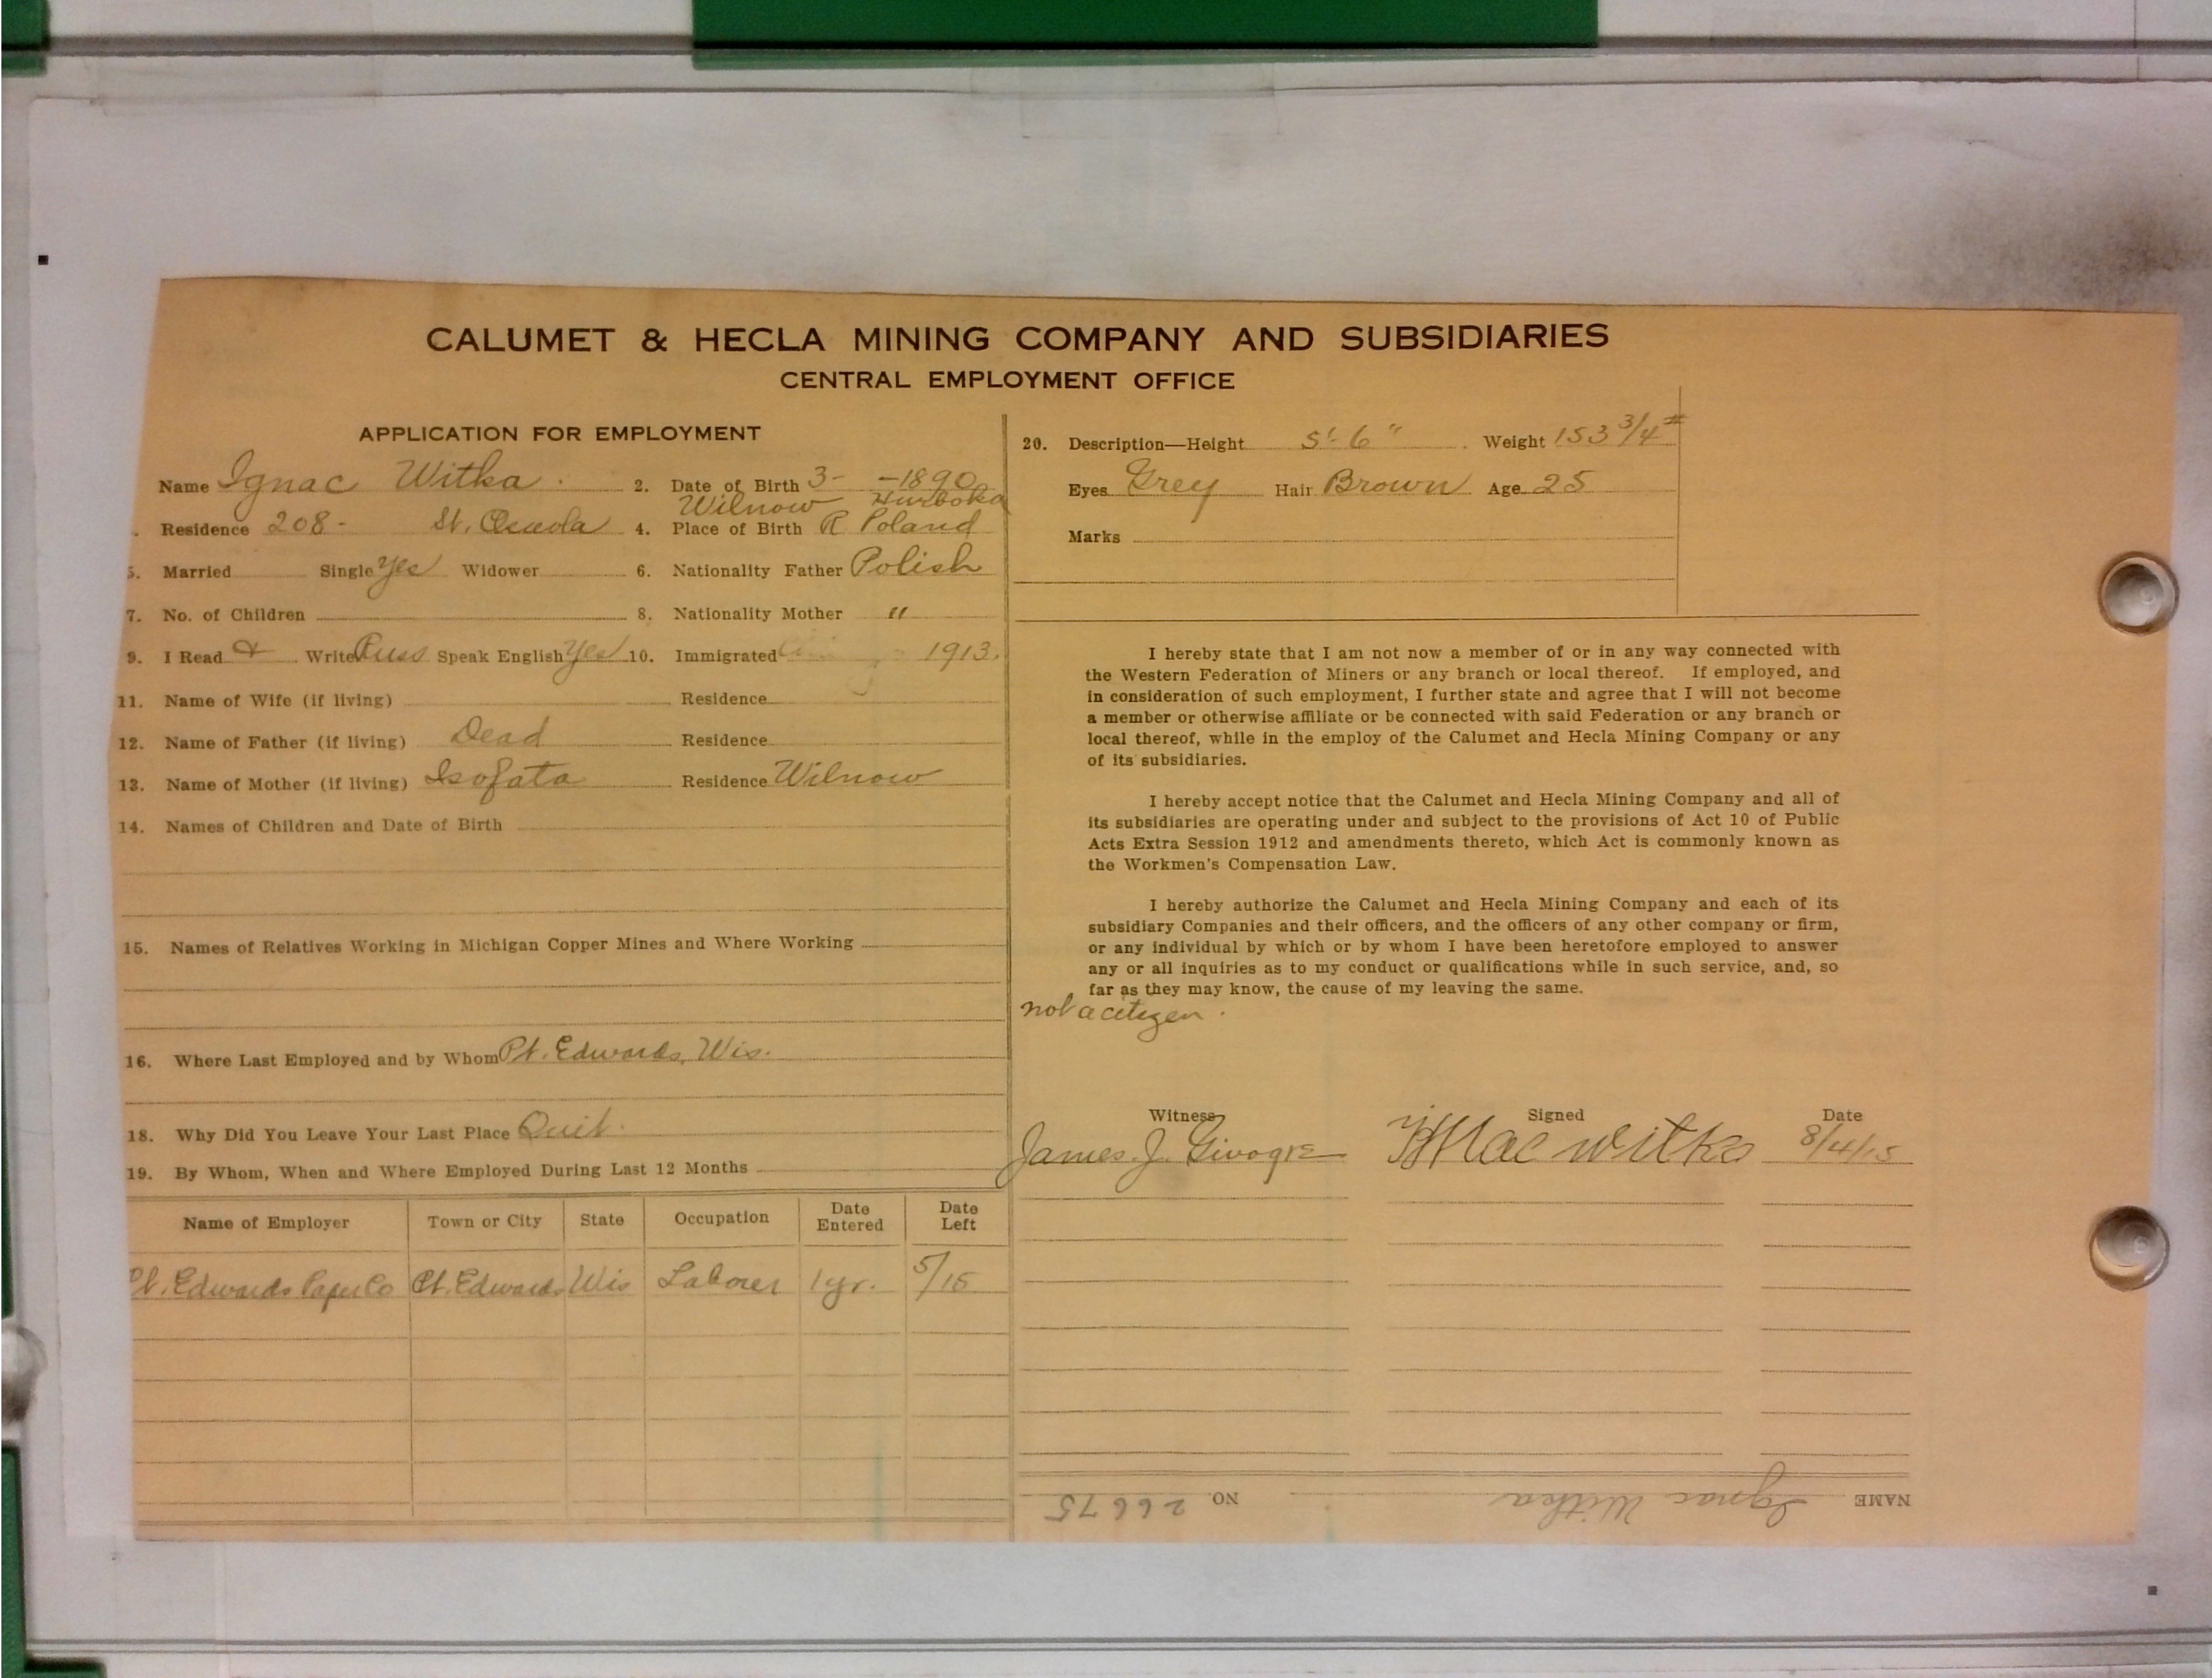 CALUMET & HECLA MINING COMPANY AND SUBSIDIARIES
CENTRAL EMPLOYMENT OFFICE
APPLICATION FOR EMPLOYMENT
Name Ignac Witka
2. Date of Birth 3- -1890
Wilnow
Residence 208- St. Osceola
4. Place of Birth R Poland
5. Married Single Yes Widower
6. Nationality Father Polish
7. No. of Children
8. Nationality Mother "
9. I Read & Write Russ Speak English Yes
10. Immigrated 1913.
11. Name of Wife (if living) Residence
12. Name of Father (if living) Dead Residence
13. Name of Mother (if living) Isofata Residence Wilnow
14. Names of Children and Date of Birth
15. Names of Relatives Working in Michigan Copper Mines and Where Working
16. Where Last Employed and by Whom Pt. Edwards, Wis.
18. Why Did You Leave Your Last Place Quit.
19. By Whom, When and Where Employed During Last 12 Months
Name of Employer Town or City State Occupation Date Entered Date Left
Pt. Edwards Paper Co Pt. Edwards Wis Laborer 1 yr. 5/15
20. Description—Height 5'-6" Weight 153 3/4 #
Eyes Grey Hair Brown Age 25
Marks
I hereby state that I am not now a member of or in any way connected with
the Western Federation of Miners or any branch or local thereof. If employed, and
in consideration of such employment, I further state and agree that I will not become
a member or otherwise affiliate or be connected with said Federation or any branch or
local thereof, while in the employ of the Calumet and Hecla Mining Company or any
of its subsidiaries.
I hereby accept notice that the Calumet and Hecla Mining Company and all of
its subsidiaries are operating under and subject to the provisions of Act 10 of Public
Acts Extra Session 1912 and amendments thereto, which Act is commonly known as
the Workmen's Compensation Law.
I hereby authorize the Calumet and Hecla Mining Company and each of its
subsidiary Companies and their officers, and the officers of any other company or firm,
or any individual by which or by whom I have been heretofore employed to answer
any or all inquiries as to my conduct or qualifications while in such service, and, so
far as they may know, the cause of my leaving the same.
not a citizen.
Witness Signed Date
James J. witka 8/4/15
NAME Ignac Witka NO 26675